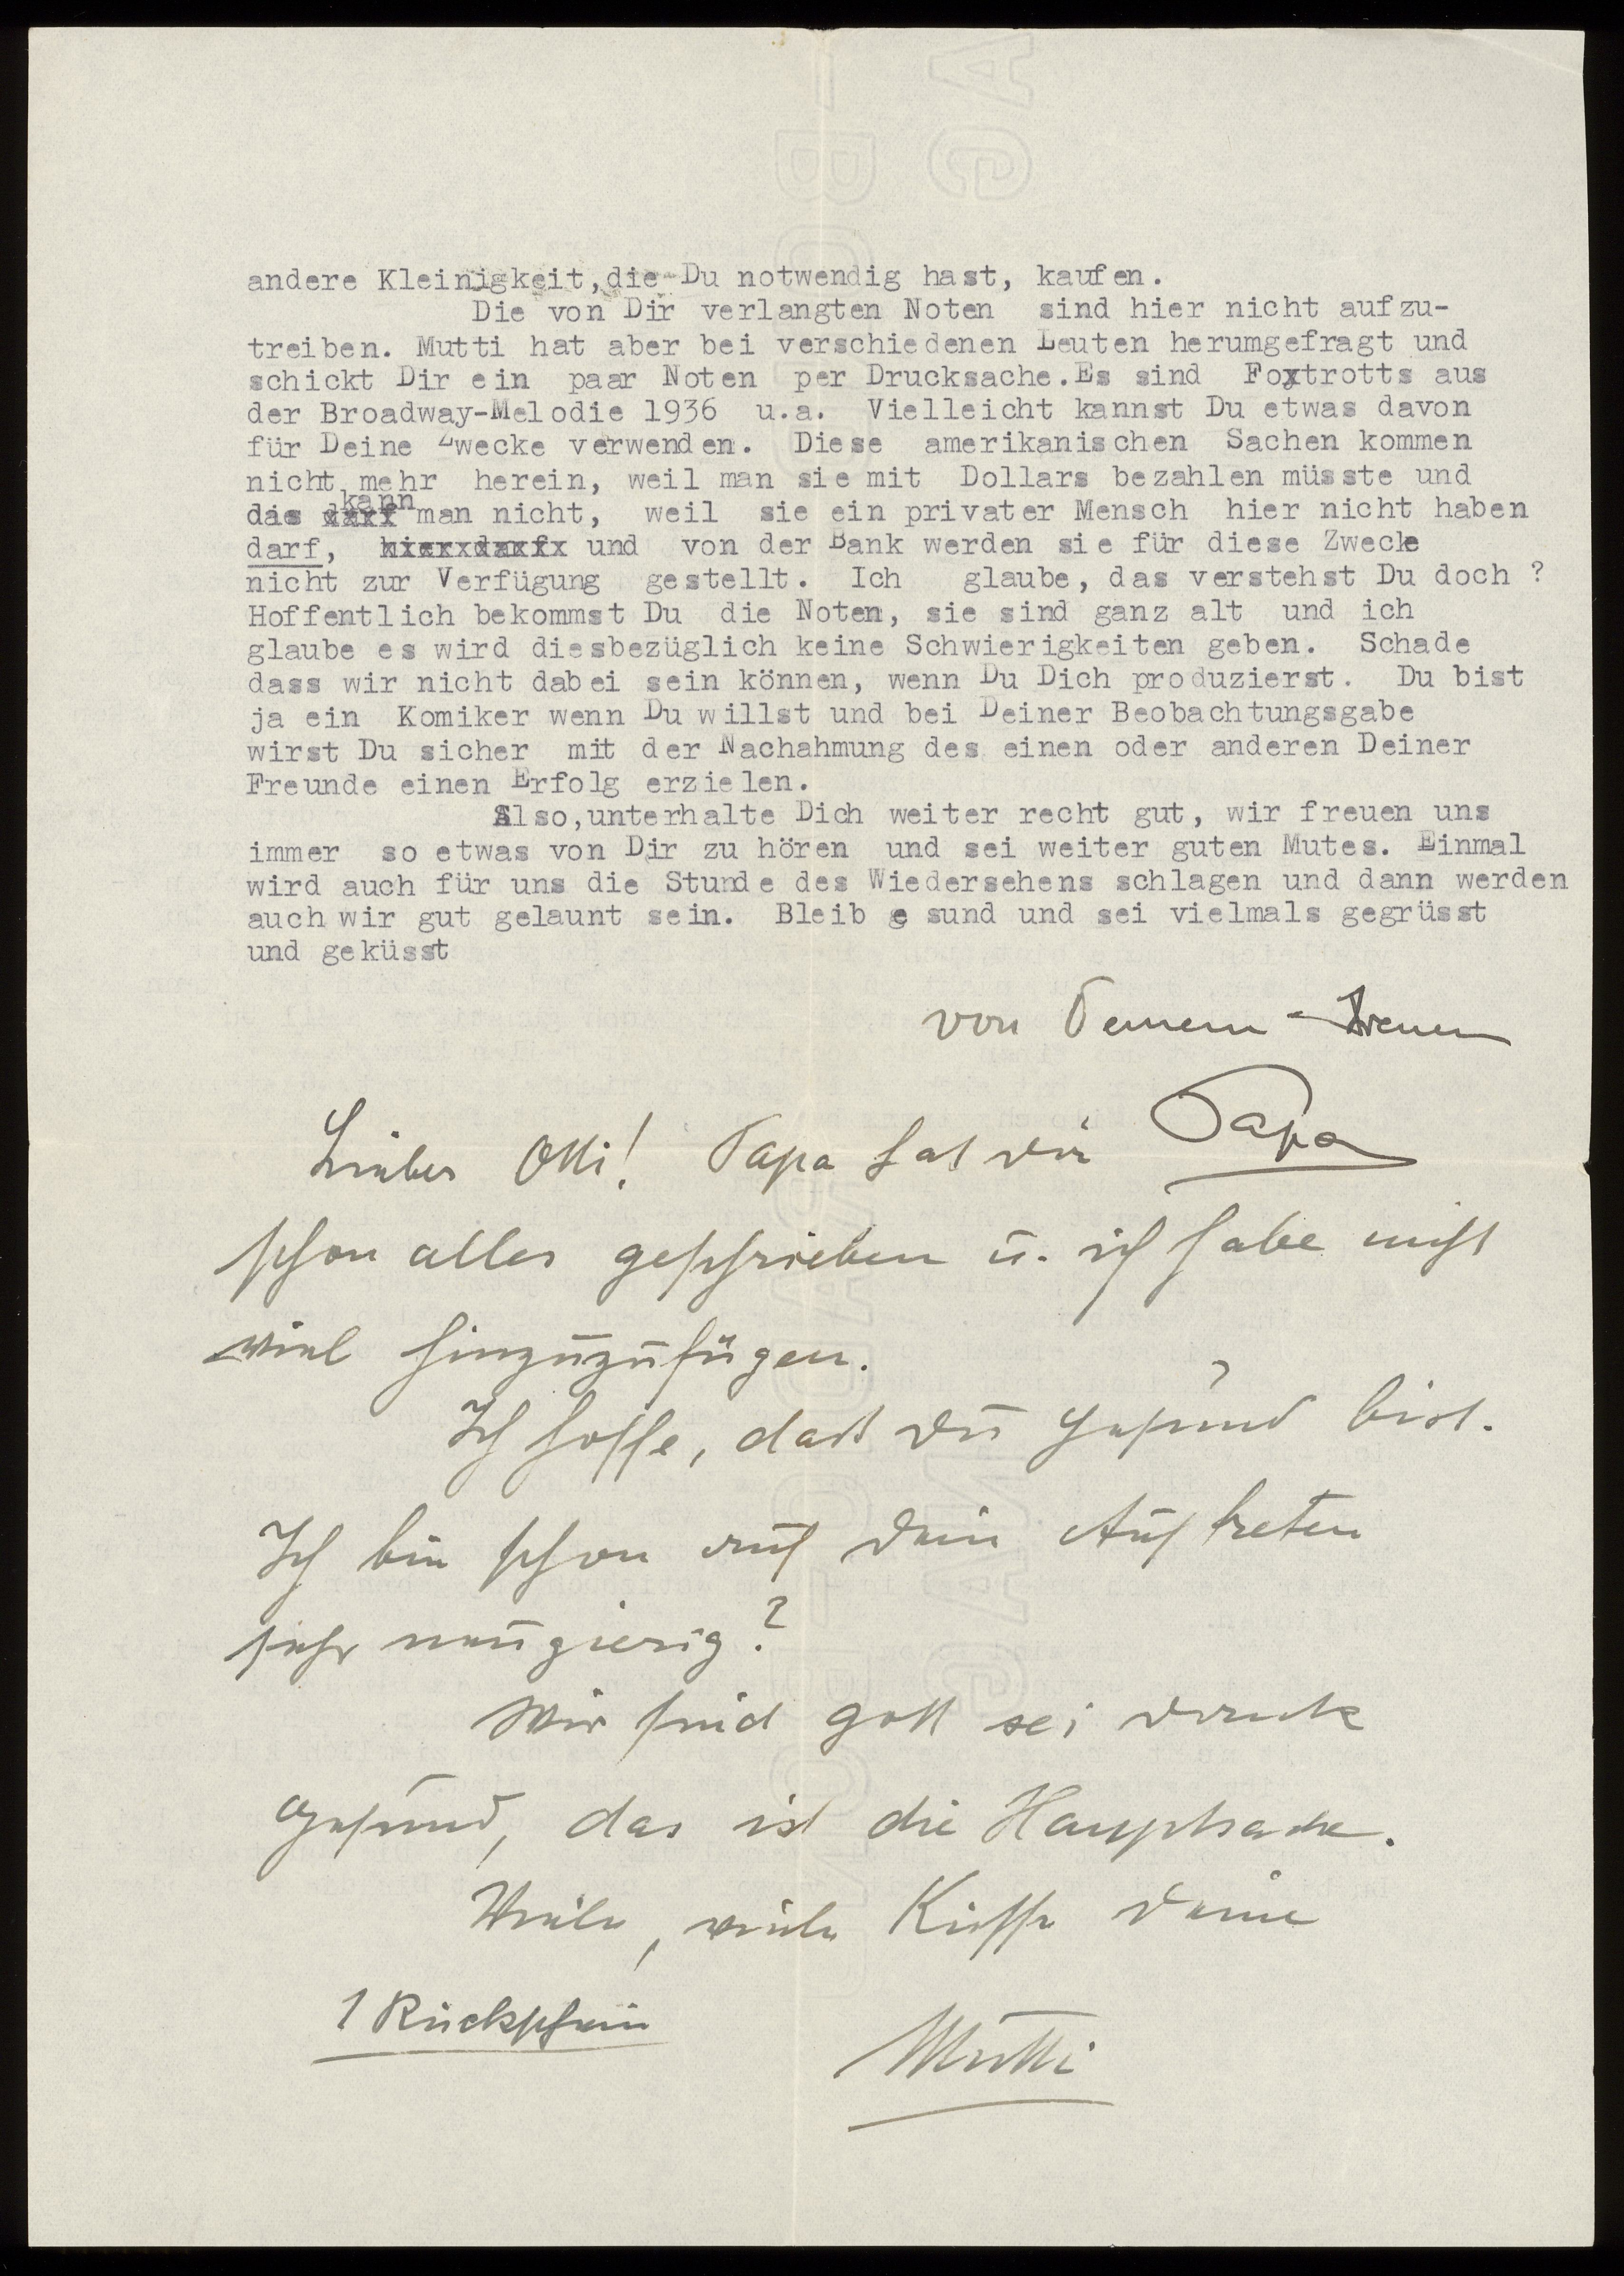 andere Kleinigkeit, die Du notwendig hast, kaufen.
Die von Dir verlangten Noten sind hier nicht aufzu-
treiben. Mutti hat aber bei verschiedenen Leuten herumgefragt und
schickt Dir ein paar Noten per Drucksache. Es sind Foxtrotts aus
der Broadway-Melodie 1936 u.a. Vielleicht kannst Du etwas davon
für Deine Zwecke verwenden. Diese amerikanischen Sachen kommen
nicht mehr herein, weil man sie mit Dollars bezahlen müsste und
das kann man nicht, weil sie ein privater Mensch hier nicht haben
darf, und von der Bank werden sie für diese Zwecke
nicht zur Verfügung gestellt. Ich glaube, das verstehst Du doch ?
Hoffentlich bekommst Du die Noten, sie sind ganz alt und ich
glaube es wird diesbezüglich keine Schwierigkeiten geben. Schade
dass wir nicht dabei sein können, wenn Du Dich produzierst. Du bist
ja ein Komiker wenn Du willst und bei Deiner Beobachtungsgabe
wirst Du sicher mit der Nachahmung des einen oder anderen Deiner
Freunde einen Erfolg erzielen.
Also, unterhalte Dich weiter recht gut, wir freuen uns
immer so etwas von Dir zu hören und sei weiter guten Mutes. Einmal
wird auch für uns die Stunde des Wiedersehens schlagen und dann werden
auch wir gut gelaunt sein. Bleib gesund und sei vielmals gegrüsst
und geküsst
von Deinem treuen
Papa
Lieber Otti! Papa hat dir
schon alles geschrieben u. ich habe nicht
viel hinzuzufügen.
Ich hoffe, daß du gesund bist.
Ich bin schon auf dein Auftreten
sehr neugierig?
Wir sind gott sei dank
gesund, das ist die Hauptsache.
Viele, viele Küsse deine
Mutti
1 Rückschein